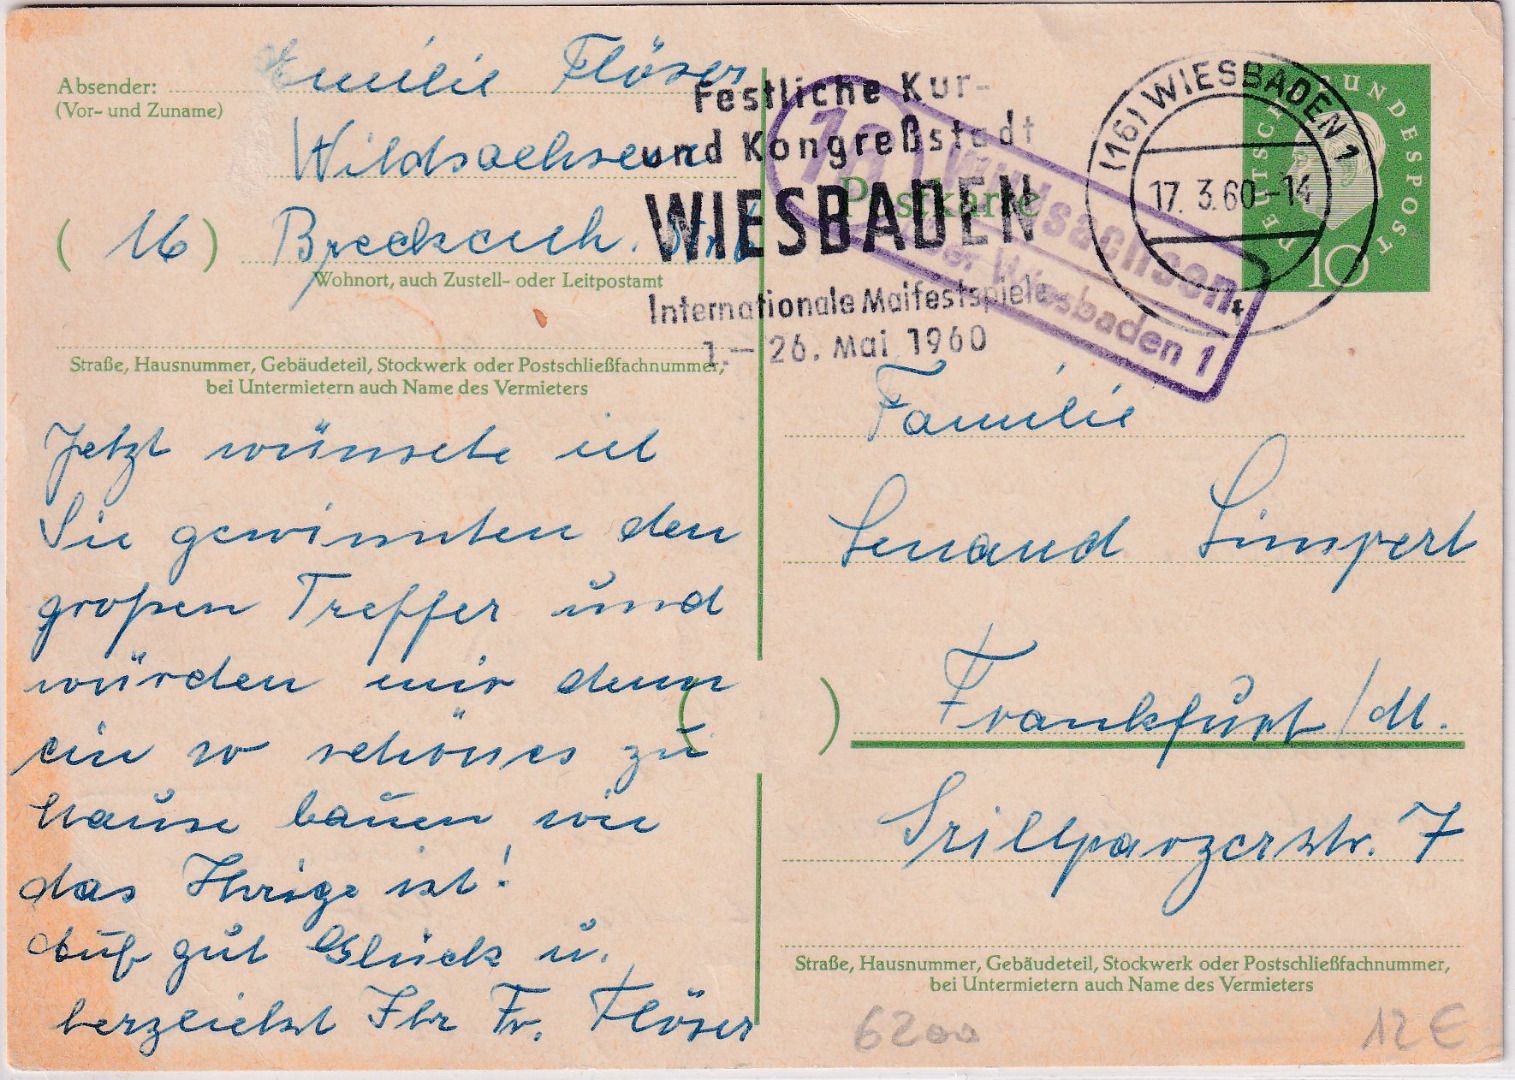 Absender: Emilie Flöser
(Vor- und Zuname)
Wildsachsen
(16) Breckenh. Str. 6
Wohnort, auch Zustell- oder Leitpostamt
Straße, Hausnummer, Gebäudeteil, Stockwerk oder Postschließfachnummer,
bei Untermietern auch Name des Vermieters
Jetzt wünschte ich
Sie gewinnten den
großen Treffer und
würden mir dann
ein so schönes zu
Hause bauen wie
das Ihrige ist!
Auf gut Glück u.
herzlichst Ihr Fr. Flöser
Festliche Kur-
und Kongreßstadt
WIESBADEN
Internationale Maifestspiele
1.– 26. Mai 1960
Postkarte
16 Wildsachsen
über Wiesbaden 1
(16) WIESBADEN 1
17. 3. 60-14
t
DEUTSCHE BUNDESPOST
10
Familie
Lenand Limpert
( ) Frankfurt/M.
Grillparzerstr. 7
Straße, Hausnummer, Gebäudeteil, Stockwerk oder Postschließfachnummer,
bei Untermietern auch Name des Vermieters
6200
12 €